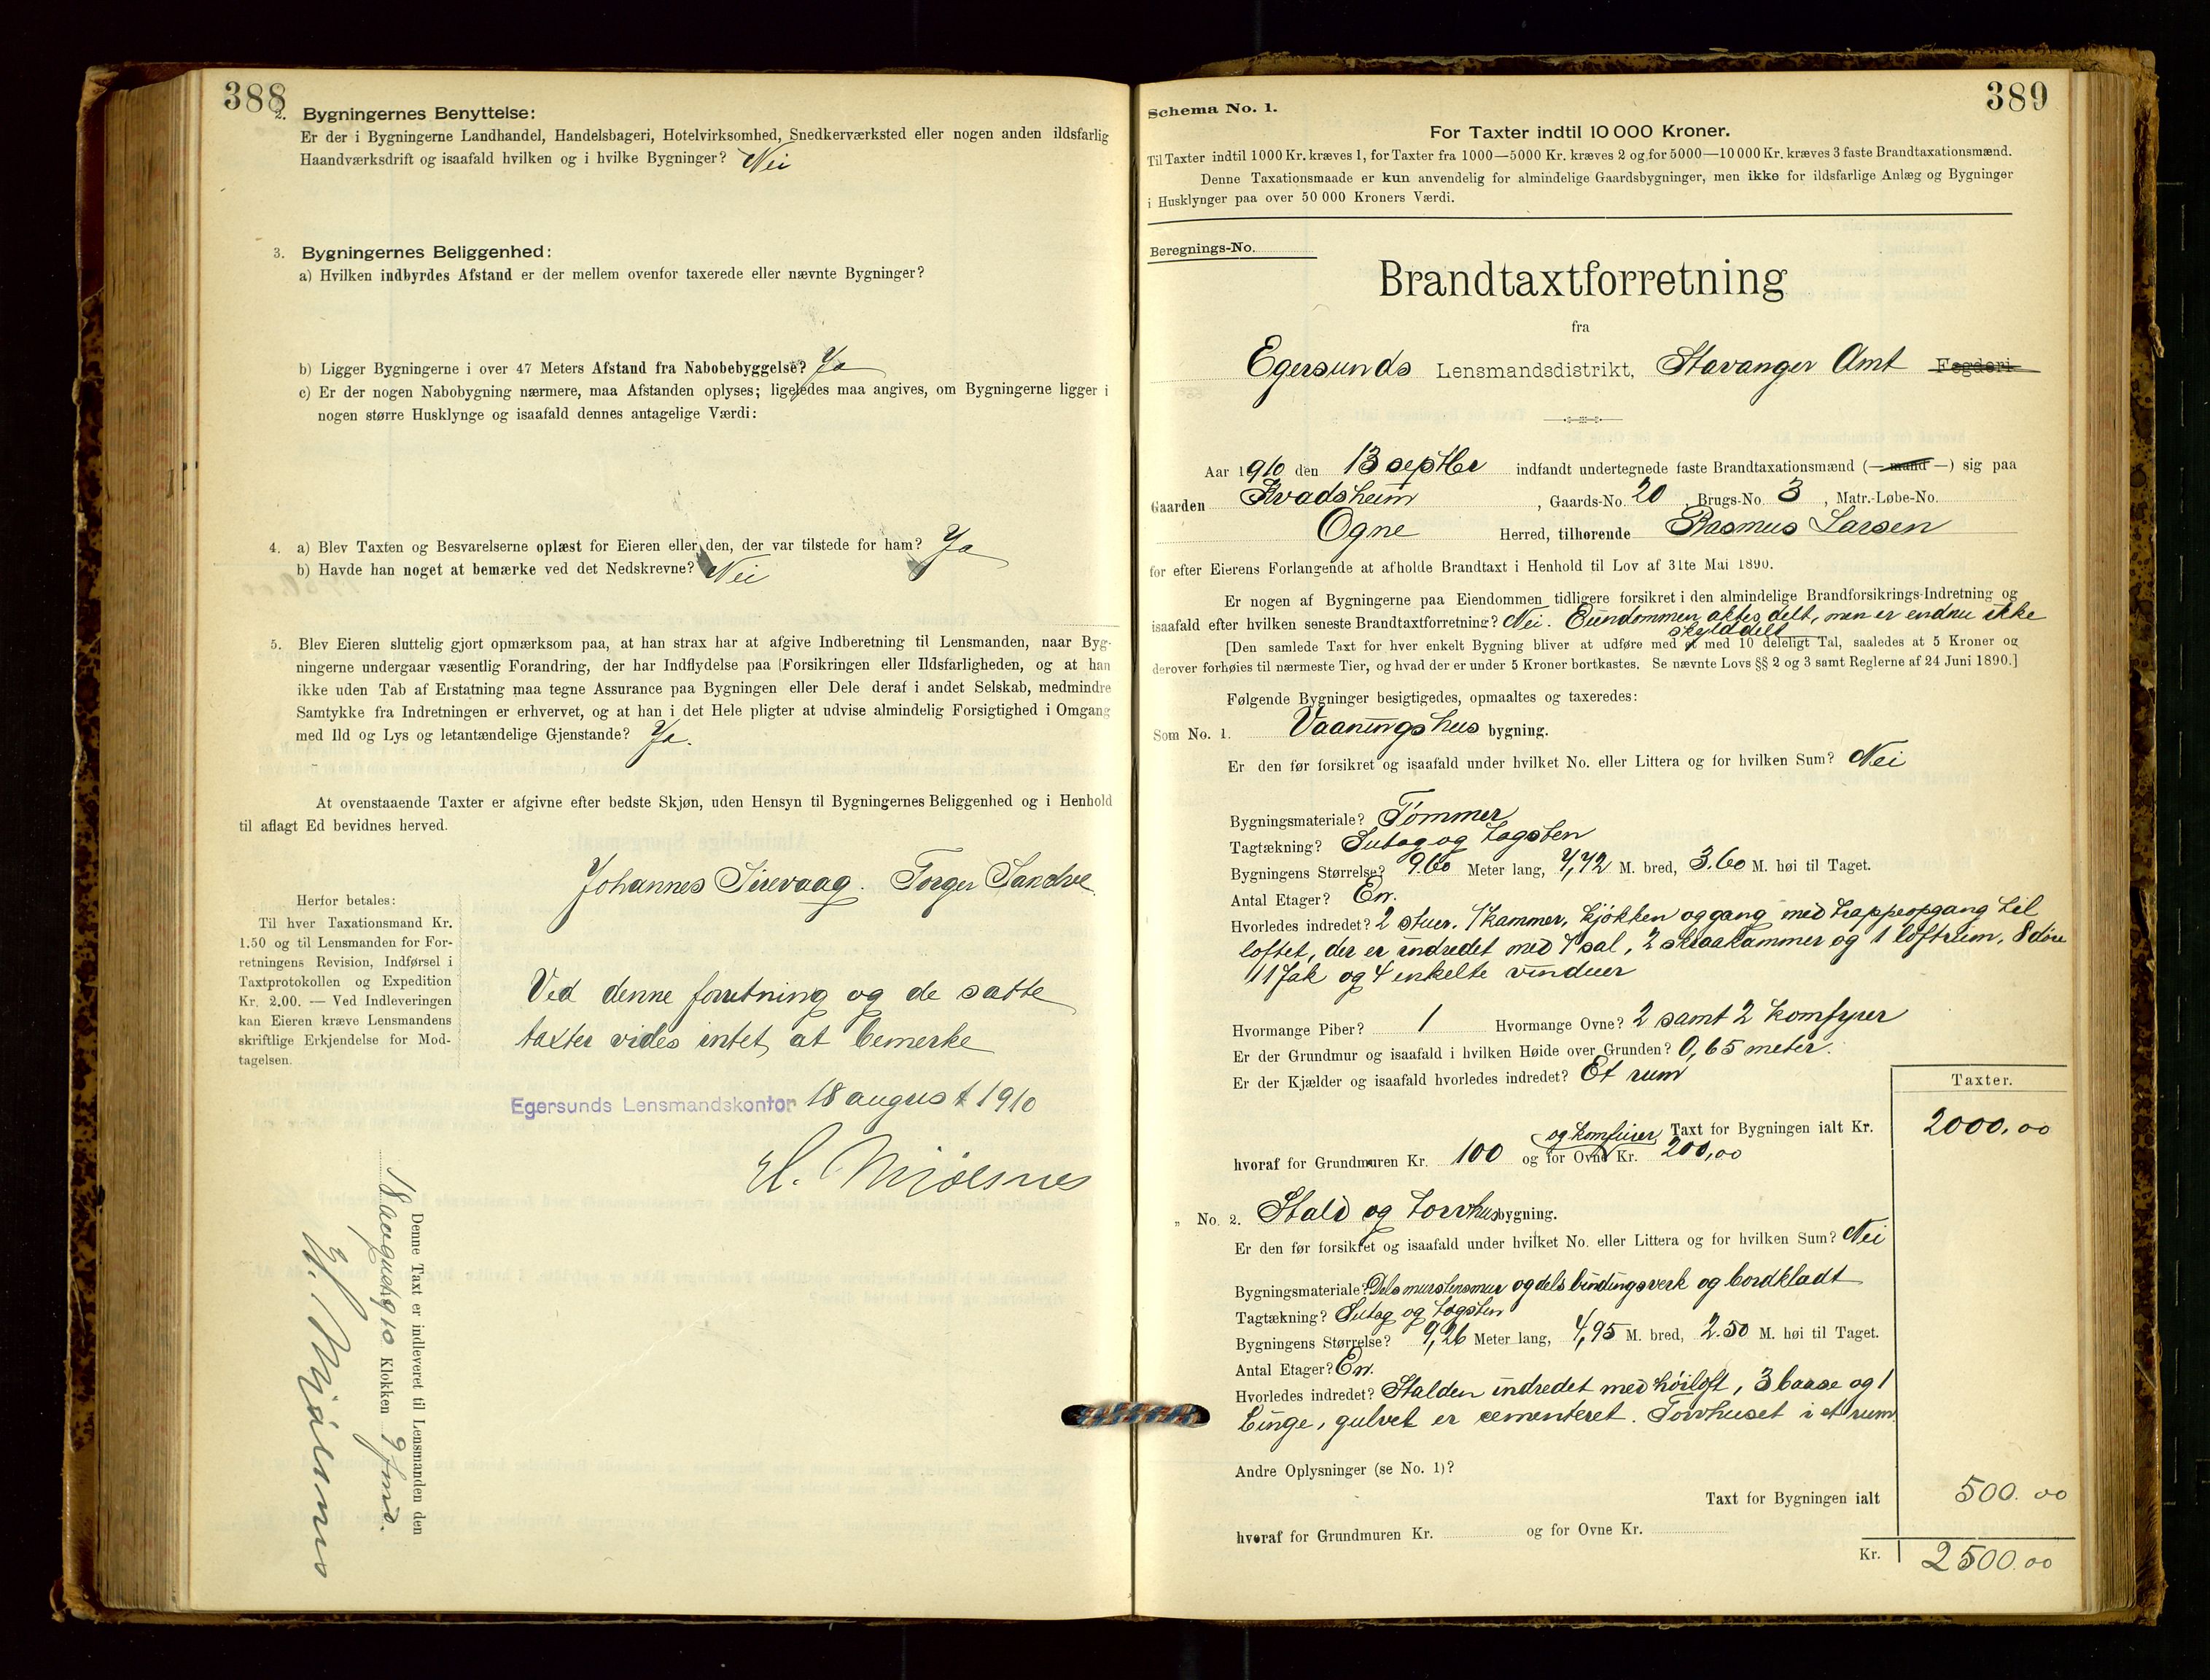 388
2. Bygningernes Benyttelse:
Er der i Bygningerne Landhandel, Handelsbageri, Hotelvirksomhed, Snedkerværksted eller nogen anden ildsfarlig
Haandværksdrift og isaafald hvilken og i hvilke Bygninger? Nei
3. Bygningernes Beliggenhed:
a) Hvilken indbyrdes Afstand er der mellem ovenfor taxerede eller nævnte Bygninger?
b) Ligger Bygningerne i over 47 Meters Afstand fra Nabobebyggelse? Ja
c) Er der nogen Nabobygning nærmere, maa Afstanden oplyses; ligeledes maa angives, om Bygningerne ligger i
nogen større Husklynge og isaafald dennes antagelige Værdi:
4. a) Blev Taxten og Besvarelserne oplæst for Eieren eller den, der var tilstede for ham? Ja
b) Havde han noget at bemærke ved det Nedskrevne? Nei
5. Blev Eieren sluttelig gjort opmærksom paa, at han strax har at afgive Indberetning til Lensmanden, naar Byg-
ningerne undergaar væsentlig Forandring, der har Indflydelse paa Forsikringen eller Ildsfarligheden, og at han
ikke uden Tab af Erstatning maa tegne Assurance paa Bygningen eller Dele deraf i andet Selskab, medmindre
Samtykke fra Indretningen er erhvervet, og at han i det Hele pligter at udvise almindelig Forsigtighed i Omgang
med Ild og Lys og letantændelige Gjenstande? Ja.
At ovenstaaende Taxter er afgivne efter bedste Skjøn, uden Hensyn til Bygningernes Beliggenhed og i Henhold
til aflagt Ed bevidnes herved.
Johannes Sirevaag. Torger Sandve.
Herfor betales:
Til hver Taxationsmand Kr.
1.50 og til Lensmanden for For-
retningens Revision, Indførsel i
Taxtprotokollen og Expedition
Kr. 2.00. — Ved Indleveringen
kan Eieren kræve Lensmandens
skriftlige Erkjendelse for Mod-
tagelsen.
Ved denne forretning og de satte
taxter vides intet at bemerke
Egersunds Lensmandskontor 18 august 1910
H. Mjølsnes
Denne Taxt er indleveret til Lensmanden den
18 august 1910 Klokken 9 fmd.
H. Mjølsnes
389
Schema No. 1.
For Taxter indtil 10 000 Kroner.
Til Taxter indtil 1000 Kr. kræves 1, for Taxter fra 1000—5000 Kr. kræves 2 og for 5000—10 000 Kr. kræves 3 faste Brandtaxationsmænd.
Denne Taxationsmaade er kun anvendelig for almindelige Gaardsbygninger, men ikke for ildsfarlige Anlæg og Bygninger
i Husklynger paa over 50 000 Kroners Værdi.
Beregnings-No.
Brandtaxtforretning
fra
Egersunds Lensmandsdistrikt, Stavanger Amt Fogderi
Aar 1910 den 13 septbr indfandt undertegnede faste Brandtaxationsmænd (— mand —) sig paa
Gaarden Kvadsheim, Gaards-No. 20 Brugs-No. 3, Matr.-Løbe-No.
Ogne Herred, tilhørende Rasmus Larsen
for efter Eierens Forlangende at afholde Brandtaxt i Henhold til Lov af 31te Mai 1890.
Er nogen af Bygningerne paa Eiendommen tidligere forsikret i den almindelige Brandforsikrings-Indretning og
isaafald efter hvilken seneste Brandtaxtforretning? Nei. Eiendommen aktes delt, men er endnu ikke
skylddelt
[Den samlede Taxt for hver enkelt Bygning bliver at udføre med et med 10 deleligt Tal, saaledes at 5 Kroner og
derover forhøies til nærmeste Tier, og hvad der er under 5 Kroner bortkastes. Se nævnte Lovs §§ 2 og 3 samt Reglerne af 24 Juni 1890.]
Følgende Bygninger besigtigedes, opmaaltes og taxeredes:
Som No. 1. Vaaningshus bygning.
Er den før forsikret og isaafald under hvilket No. eller Littera og for hvilken Sum? Nei
Bygningsmateriale? Tømmer
Tagtækning? Sutag og tagsten
Bygningens Størrelse? 9.60 Meter lang, 7,72 M. bred, 3.60 M. høi til Taget.
Antal Etager? En.
Hvorledes indredet? 2 stuer. 1 kammer, kjøkken og gang med trappeopgang til
loftet, der er indredet med 1 sal, 2 skraakammer og 1 loftrum, 8 døre
11 fak og 4 enkelte vinduer
Hvormange Piber? 1 Hvormange Ovne? 2 samt 2 komfyrer
Er der Grundmur og isaafald i hvilken Høide over Grunden? 0,65 meter.
Er der Kjælder og isaafald hvorledes indredet? Et rum
Taxter.
Taxt for Bygningen ialt Kr. 2000,00
og komfyirer
hvoraf for Grundmuren Kr. 100 og for Ovne Kr. 200,00
„ No. 2. Stald og torvhus bygning.
Er den før forsikret og isaafald under hvilket No. eller Littera og for hvilken Sum? Nei
Bygningsmateriale? Dels murstensmur og dels bindingsverk og bordkladt
Tagtækning? Sutag og tagsten
Bygningens Størrelse? 9,26 Meter lang, 4,95 M. bred, 2.50 M. høi til Taget.
Antal Etager? En.
Hvorledes indredet? Stalden indredet med høiloft, 3 baase og 1
binge, gulvet er cementeret. Torvhuset i et rum
Andre Oplysninger (se No. 1)?
Taxt for Bygningen ialt 500.00
hvoraf for Grundmuren Kr. og for Ovne Kr.
Kr. 2500.00